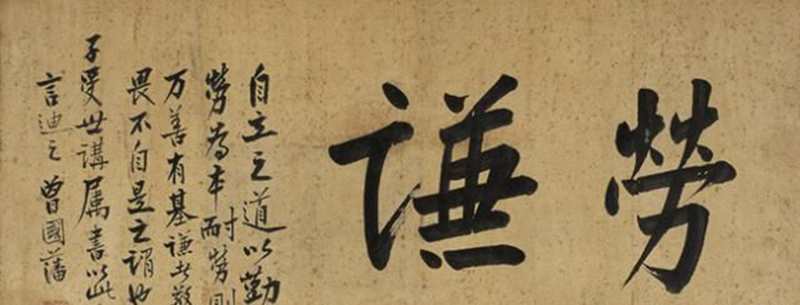 勞謙
自立之道以勤
勞為本而勞則
万善有基謙者敬
畏不自是之謂也
子受世講屬書以此
言迪之 曾國藩